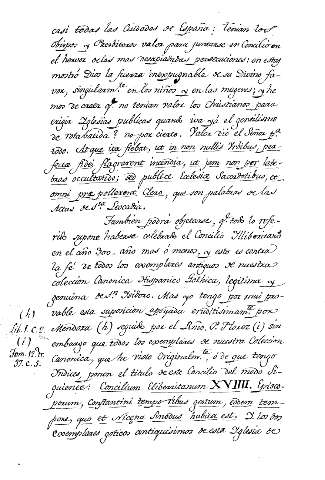 casi todas las Ciudades de España; tenian los
Obispos y Presbiteros valor para juntarse en Concilio en
el hervor de las mas sangrientas persecuciones; en ellas
mostró Dios la fuerza inexpugnable de su Divino fa-
vor, singularm.te en los niños y en las mugeres; y he-
mos de creer q.e no tenian valor los Christianos para
erigir Iglesias publicas quando iva ya el
de ? no por cierto. Valor dice el Señor P.e
todo. Atque ita fiebat, ut in non nullis Urbibus, per-
fecta fidei flagrarent incendia, ut jam non per late-
bras occultarido; sed publice Ecclesia Sacerdotibus, et
omni præ polleret Clero, que son palabras de las
Actas de S.ta Leocadia.
Tambien podrá objetarse, q.e todo lo refe-
rido supone haberse celebrado el Concilio Illiberitano
en el año 300. año mas ó menos, y esto es contra
la fé de todos los exemplares antiguos de nuestra
coleccion Canonica Hispanico Gothica, legitima y
genuina de S.n Isidoro. Mas yo tengo por mui pro-
vable esta suposicion apoyada eruditisimam.te por
(h)
Lib. 1. c.
Mendoza (h) seguido por el Rmo. P. Florez (i) sin
(i)
Tom. 12. tr.
37. c. 5.
embargo que todos los exemplares de nuestra Coleccion
Canonica, que he visto Originalm.te, ó de que tengo
Indices, ponen el titulo de este Concilio del modo si-
guiente: Concilium Eliberitanum XVIIII. Episco-
porum, Constantini temporibus gestum, eodem tem-
pore, quo et Nicæna Sinodus habita est. A los dos
exemplares goticos antiquisimos de esta Iglesia de